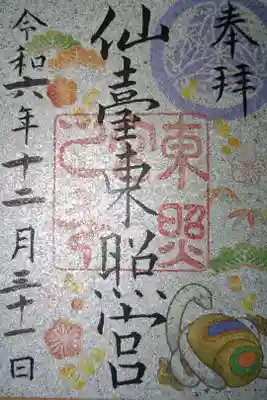 奉拝
仙臺東照宮
令和六年十二月三十一日
東照